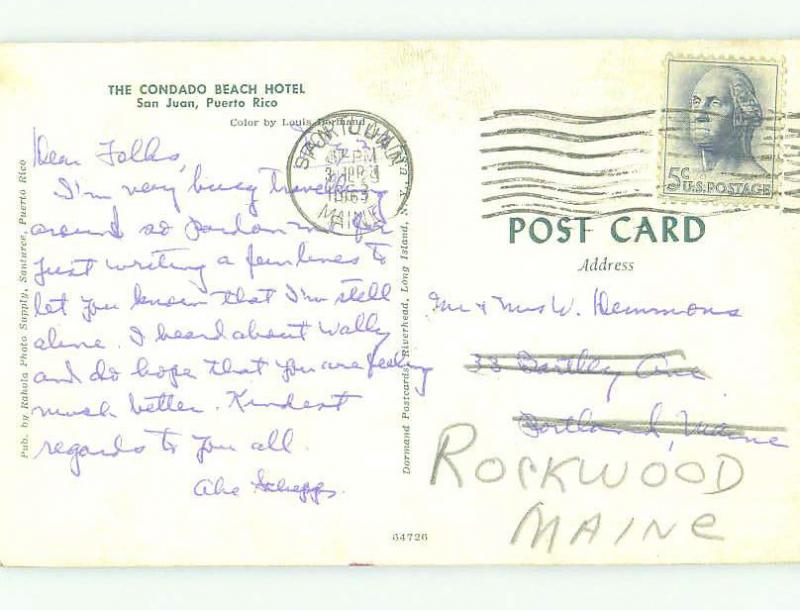 THE CONDADO BEACH HOTEL
San Juan, Puerto Rico
Color by Louis Dormand
Dear Folks,
I'm very busy travelling
around so pardon me for
just writing a few lines to
let you know that I'm still
alive. I heard about Wally
and do hope that you are feeling
much better. Kindest
regards to you all.
Abe
Pub. by Rahola Photo Supply, Santurce, Puerto Rico
Dormand Postcards Riverhead, Long Island, N. Y.
64726
PM
MAINE
5c
U.S. POSTAGE
POST CARD
Address
Mr & Mrs W. Hemmons
38 Bartley Ave.
Portland, Maine
ROCKWOOD
MAINE